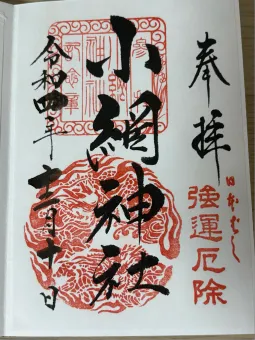 奉拝
日本ばし
強運厄除
小網神社
令和四年十二月十日